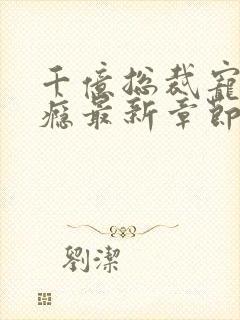 千億总裁寵
瘾最新章節
劉潔